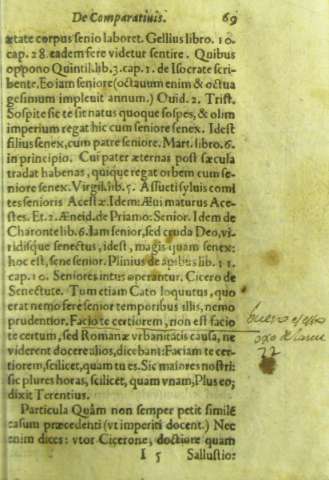 De Comparatiuis. 69
ætate corpus senio laboret. Gellius libro. 10.
cap. 28. eadem fere videtur sentire. Quibus
oppono Quintil. lib. 3. cap. 1. de Isocrate scri-
bente. Eo iam seniore (octauum enim & octua
gesimum impleuit annum.) Ouid. 2. Trist.
Sospite sic te sit natus quoque sospes, & olim
imperium regat hic cum seniore senex. Idest
filius senex, cum patre seniore. Mart. libro. 6.
in principio. Cui pater æternas post sæcula
tradat habenas, quique regat orbem cum se-
niore senex. Virgil. lib. 5. Assueti syluis comi
tes senioris Acestæ. Idem: Æui maturus Ace-
stes. Et. 2. Æneid. de Priamo: Senior. Idem de
Charonte lib. 6. Iam senior, sed cruda Deo, vi-
ridisque senectus, idest, magis quam senex:
hoc est, sene senior. Plinius de apibus lib. 11.
cap. 10. Seniores intus operantur. Cicero de
Senectute. Tum etiam Cato loquutus, quo
erat nemo fere senior temporibus illis, nemo
prudentior. Facio te certiorem, non est facio
te certum, sed Romanæ vrbanitatis causa, ne
viderent docere alios, dicebant: Faciam te cer-
tiorem, scilicet, quam tu es. Sic maiores nostri:
sic plures horas, scilicet, quam vnam, Plus eo,
dixit Terentius.
Particula Quàm non semper petit simile
casum præcedenti (vt imperiti docent.) Nec
enim dices: vtor Cicerone, doctiore quam
I 5 Sallustio:
22